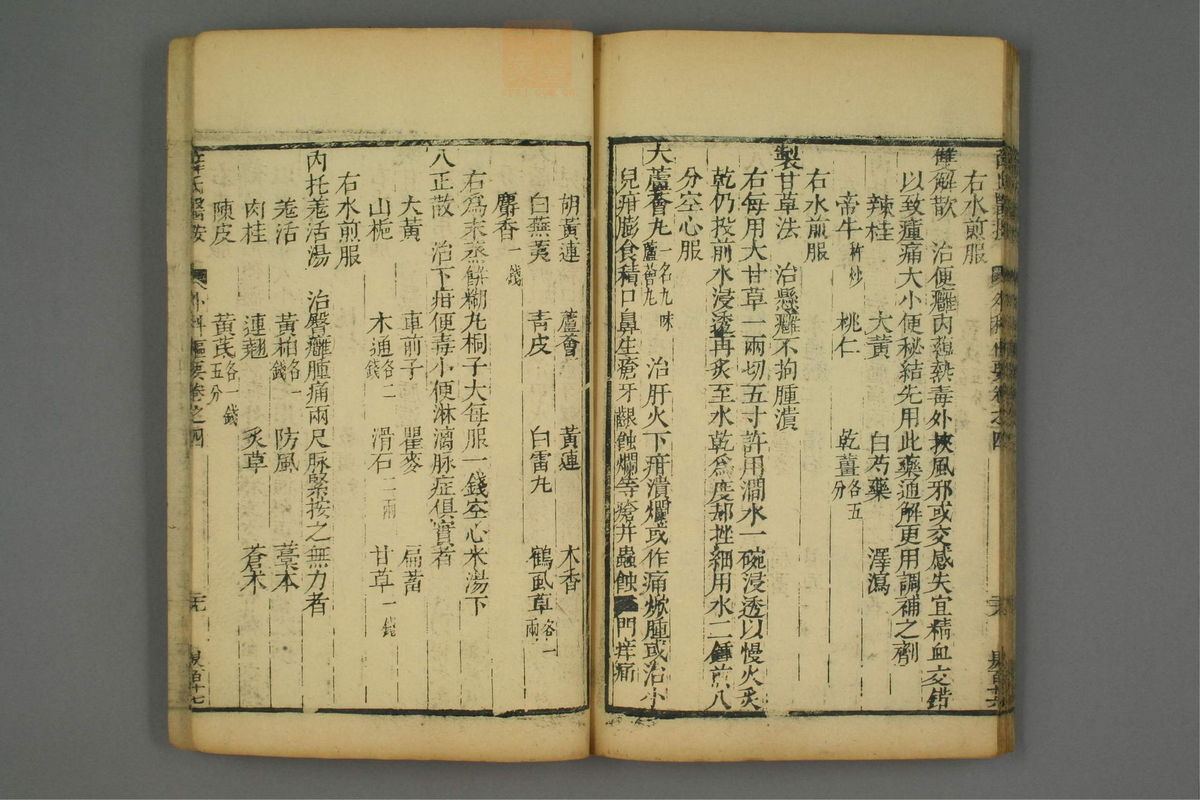 右水煎服
雙解散 治便癰內蘊熱毒外挾風邪或交感失宜精血交錯
以致腫痛大小便秘結先用此藥通解更用調補之劑
辣桂 大黃 白芍藥 澤瀉
帝牛杵炒 桃仁 乾薑各五分
右水煎服
製甘草法 治懸癰不拘腫潰
右每用大甘草一兩切五寸許用澗水一碗浸透以慢火炙
乾仍投前水浸透再炙至水乾爲度却挫細用水二鍾煎八
分空心服
大蘆薈丸一名九味蘆薈丸 治肝火下疳潰爛或作痛焮腫或治小
兒疳膨食積口鼻生瘡牙齦蝕爛等瘡并蟲蝕門痒痛
胡黃連 蘆薈 黃連 木香
白蕪荑 靑皮 白雷丸 鶴虱草各一兩
麝香一錢
右爲末蒸餅糊丸桐子大每服一錢空心米湯下
八正散 治下疳便毒小便淋漓脉症俱實者
大黃 車前子 瞿麥 扁蓄
山梔 木通各二錢 滑石二兩 甘草一錢
右水煎服
內托羗活湯 治臀癰腫痛兩尺脉緊按之無力者
羗活 黃柏各一錢 防風 藁本
肉桂 連翹 炙草 蒼木
陳皮 黃芪各一錢五分
薛氏醫按 外科樞要卷之四